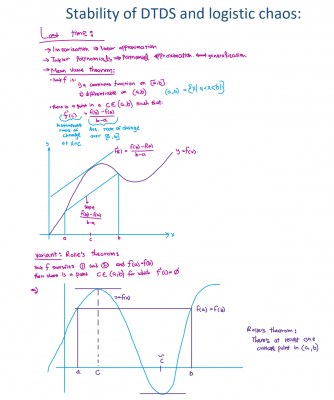 Stability of DTDS and logistic chaos:
Last time:
→ Linearization → linear approximation
→ Taylor Polynomials → Polynomial approximation and generalization
→ Mean Value Theorem:
f is
1) a continuous function on [a,b]
2) differentiable on (a,b) (a,b) = {x | a<x<b}
• there is a point in c ∈ (a,b) such that:
f'(c) = f(b) - f(a)
b-a
Instantaneous rate of change at x=c
Ave rate of change over [a,b]
f'(c) = f(b)-f(a)
b-a
y=f(x)
y
slope
f(b)-f(a)
b-a
a c b x
Variant: Rolle's theorem:
f satisfies ① and ② and f(a)=f(b)
then there is a point c ∈ (a,b) for which f'(c)=0
y=f(x)
f(a) = f(b)
a c c̃ b
Rolle's theorem:
There's at least one
critical point in (a,b)